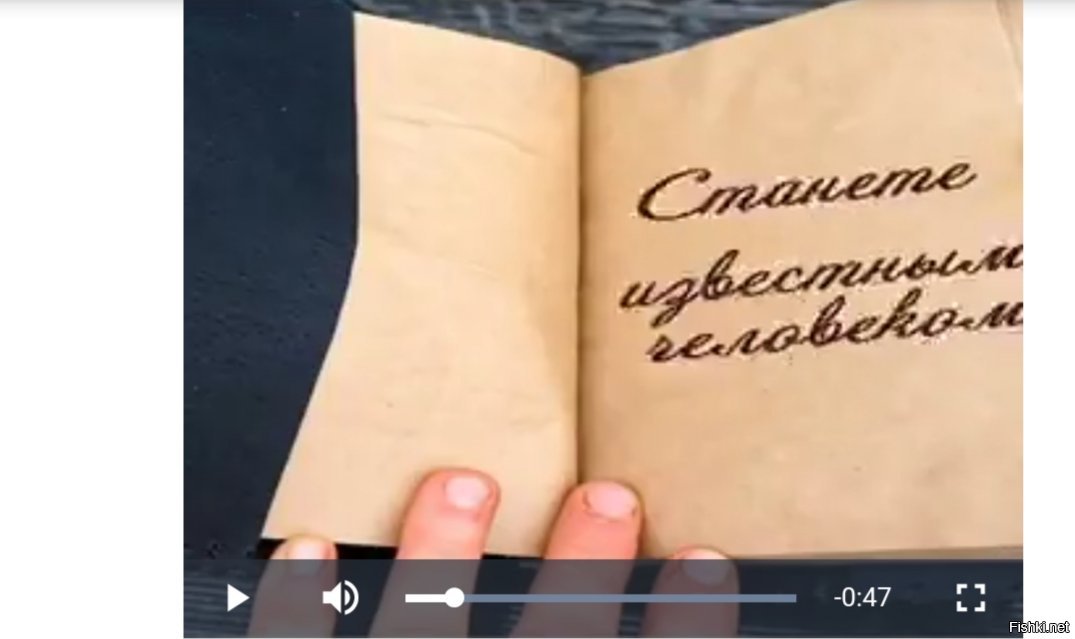 Станете
известным
человеком
-0:47
Fishki.net